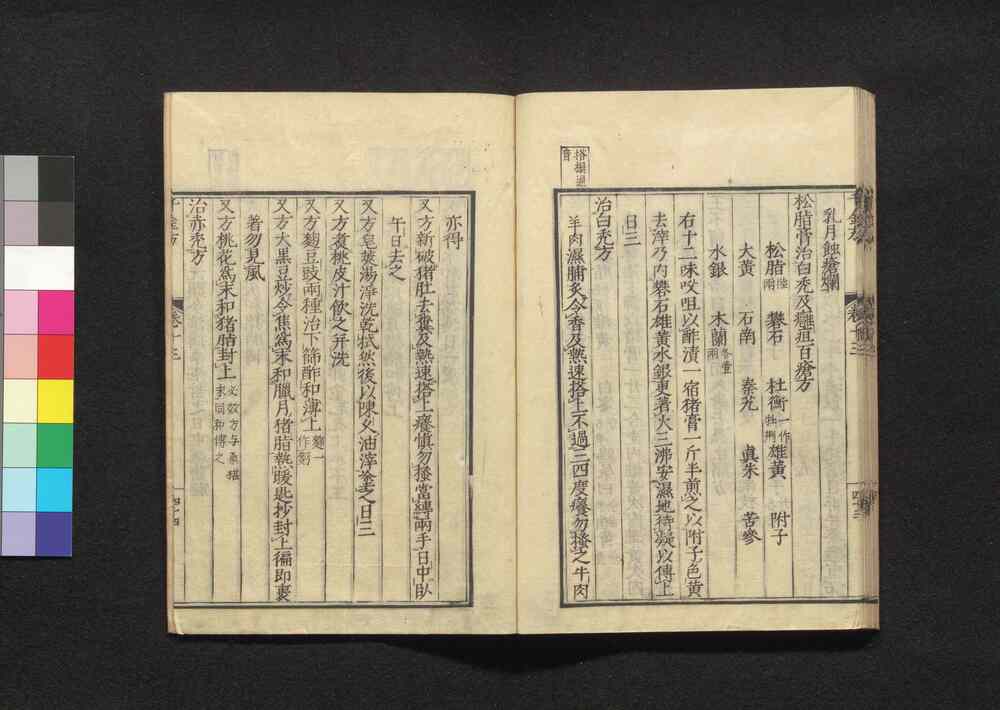 乳月蝕瘡爛
松脂膏治白禿及癰疽百瘡方
松脂 陸兩 礬石 杜衡 一作牡荆 雄黃 附子
大黃 石南 秦艽 真朱 苦參
水銀 木蘭 各壹兩
右十二味㕮咀以酢漬一宿猪膏一斤半煎之以附子色黃
去滓乃内礬石雄黃水銀更著火三沸安濕地待凝以傅上
日三
治白禿方
羊肉濕脯炙令香及熱速搭上不過三四度癢勿搔之牛肉
亦得
又方新破猪肚去糞及熱速搭上癢慎勿搔當縛兩手日中臥
半日去之
又方皂莢湯淨洗乾拭然後以陳久油滓塗之日三
又方煑桃皮汁飲之并洗
又方麹豆豉兩種治下篩酢和薄上 麹一作麪
又方大黑豆炒令焦爲末和臘月猪脂熱暖匙抄封上徧即裹
著勿見風
又方桃花爲末和猪脂封上
治赤禿方
千金方
卷十三
四十三
千金方
卷十三
四十四